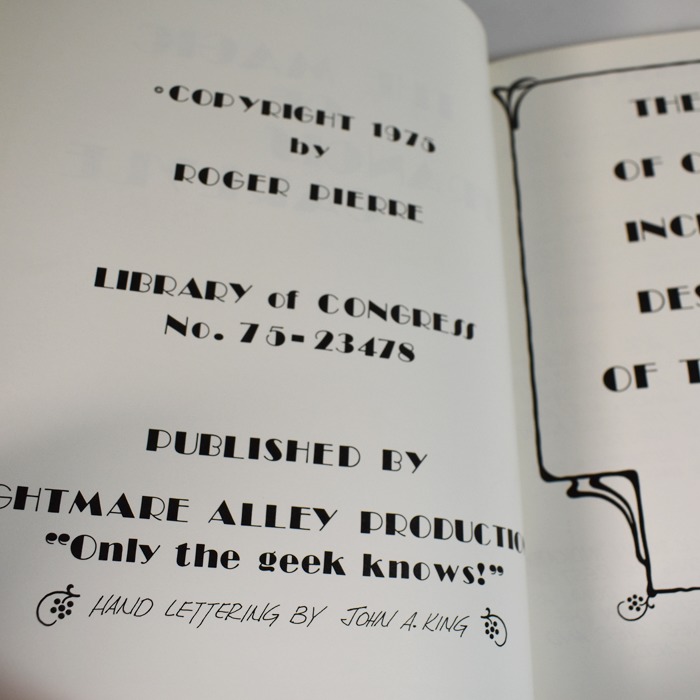 ©COPYRIGHT 1975
by
ROGER PIERRE
LIBRARY of CONGRESS
No. 75-23478
PUBLISHED BY
GHTMARE ALLEY PRODUCTIO
“Only the geek knows!”
HAND LETTERING BY JOHN A. KING
THE
OF C
INC
DES
OF T